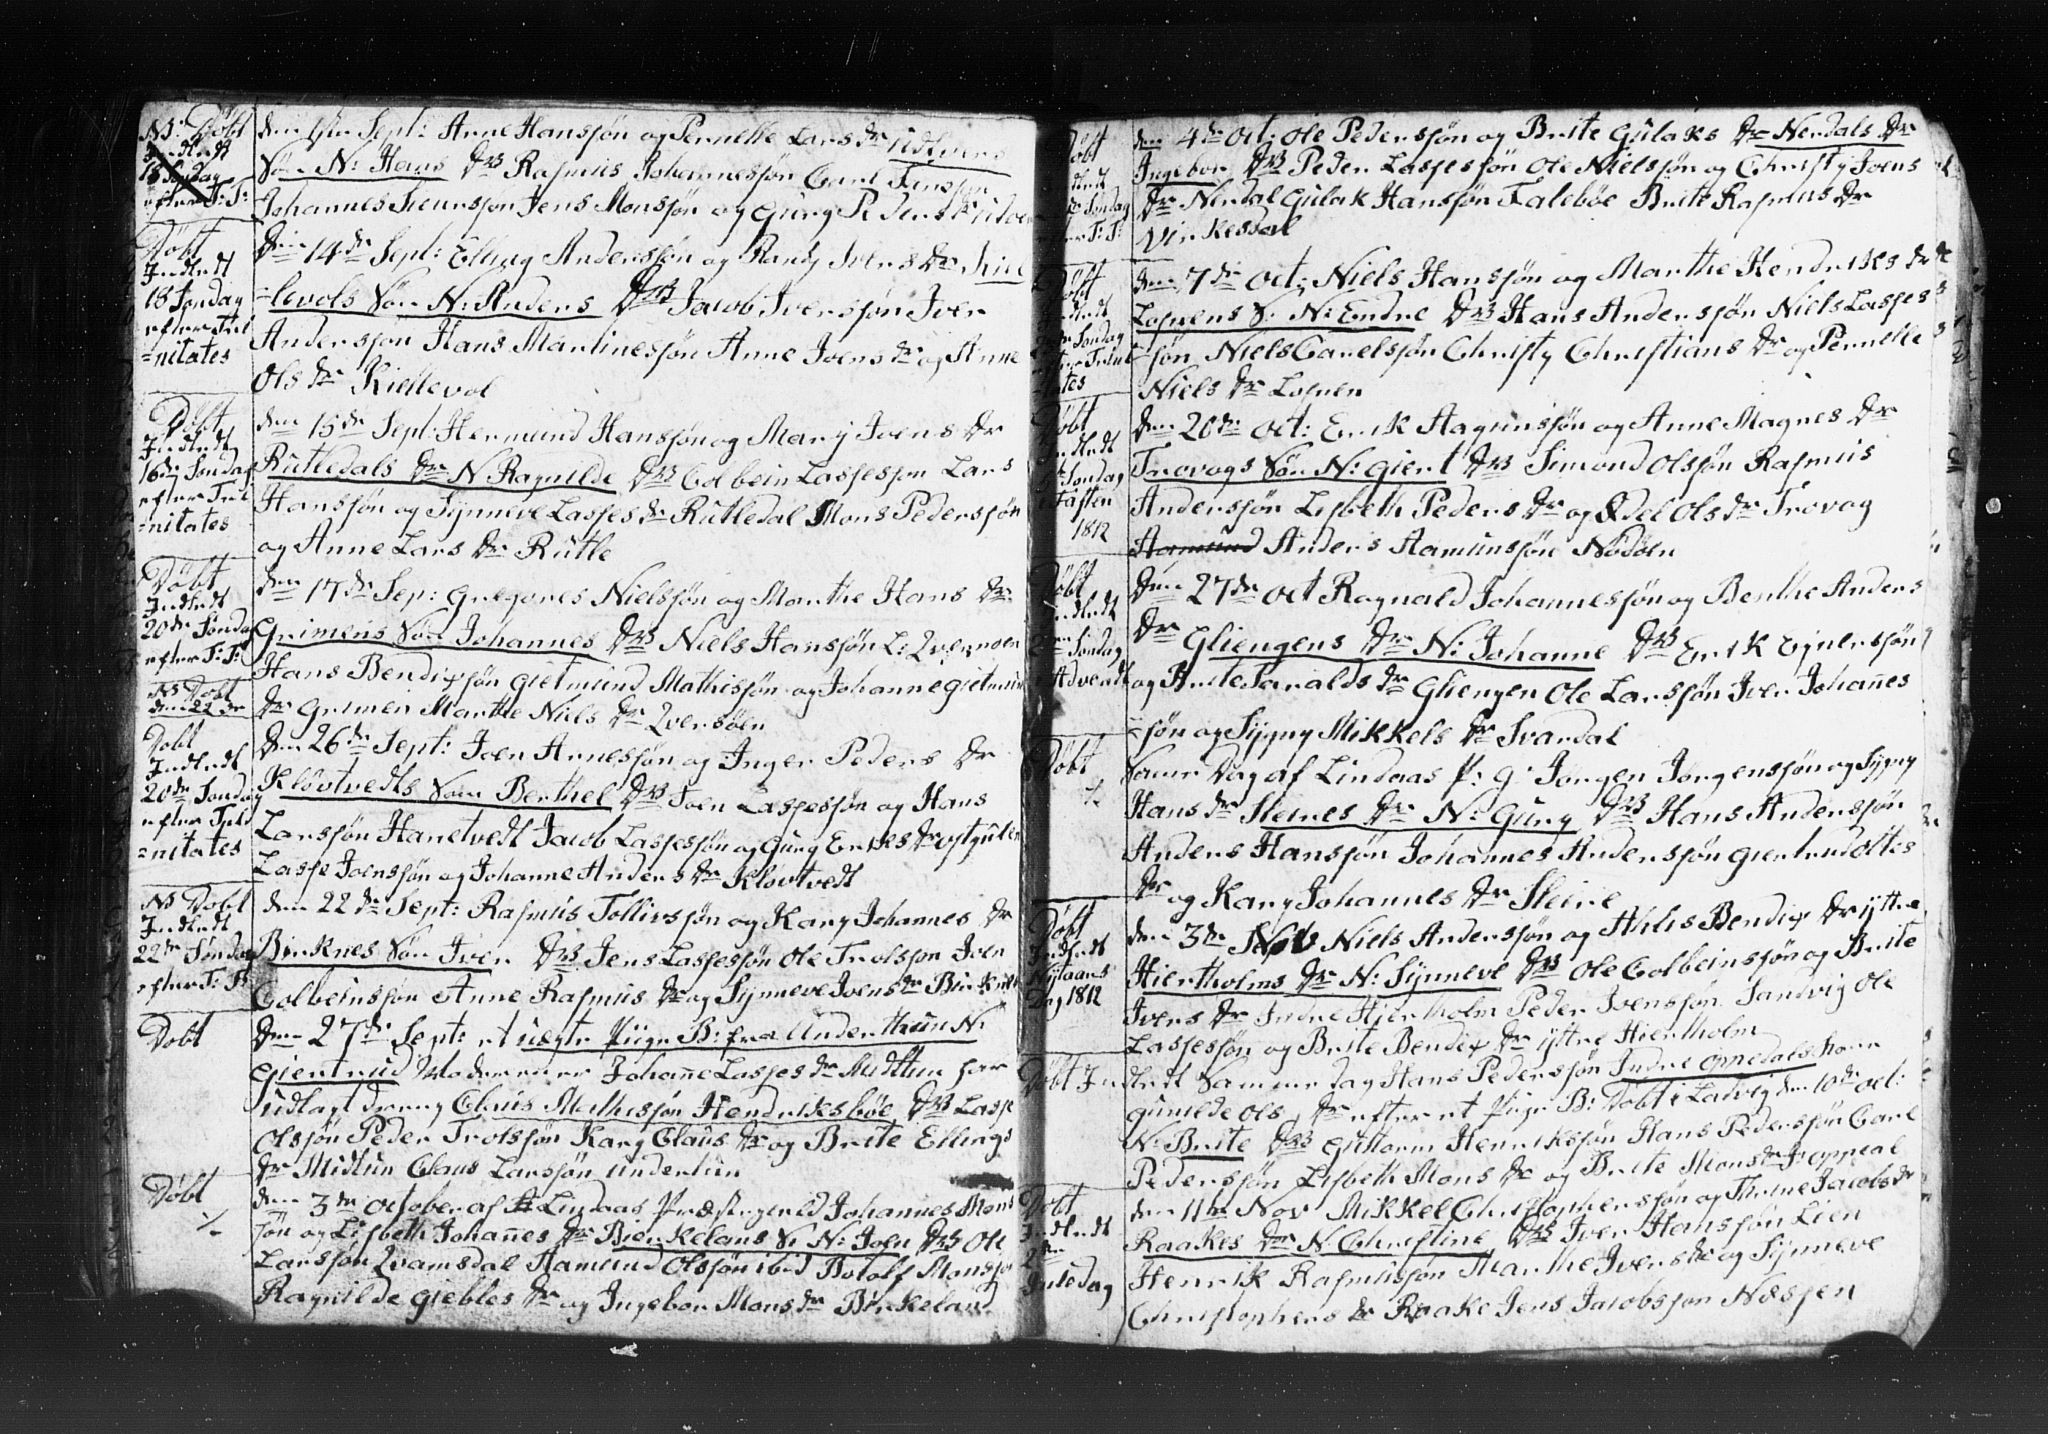 Ns: Døbt
Indledt
18 Søndag
efter T: T:
den Sept: Arne Hanssøn og Pernelle Lars dr Udtuers
Søn N: Hans Drs Rasmus Johannessøn Carl Jenssøn
Johannes Jenssøn Jens Monssøn og Gury Peders
Døbt
Indledt
18 Søndag
efter Tri
=nitates
Den 14de Sept: Elling Anderssøn og Randj Ivers Dr
=levols Søn N: Anders Drs Jacob Iverssøn Iver
Anderssøn Hans Martinessøn Anne Joens dr og Anne
Ols dr Kiellevol
Døbt
Indledt
16de Søndag
efter Tri
=nitates
den 15de Sept: Hermund Hanssøn og Marij Joens Dr
Rutledals Dr N Ragnilde Drs Colbein Lassessøn Lars
Hanssøn og Synneve Lasses dr Rutledal Mons Pederssøn
og Anne Lars Dr Rutle
Døbt
Indledt
20de Søndag
efter T: T:
den 17de Sep: Gregores Nielssøn og Marthe Hans Dr
Grimens Søn Johannes Drs Niels Hanssøn
Hans Bendixsøn Gietmund Mathissøn og Johanne Gietmund
Dr Grimen Marthe Niels Dr Qversøen
Ns Døbt
den 22 de
Døbt
Indledt
20de Søndag
efter Tri
=nitates
Den 26de Sept: Joen Arnessøn og Inger Peders Dr
Kløvtvedts Søn Berthel Drs Joen Lassessøn og Hans
Larssøn Hanetvedt Jacob Lassessøn og Gury Eriks Dr
Lasse Joenssøn og Johanne Anders Dr Kløvtvedt
Ns Døbt
Indledt
22de Søndag
efter T: T:
den 22de Sept: Rasmus Tollivssøn og Kary Johannes Dr
Birknes Søn Iver Drs Jens Lassessøn Ole Trolssøn Iver
Colbeinssøn Anne Rasmus Dr og Synneve Ivers Dr Birknes
Døbt
Den 27de Sept: et uægte Pige B: fra Underthun N:
Giertrud Moderen er Johanne Lasses dr Midttun har
udlagt dreng Claus Mathissøn Hendrikesbøe Drs Lasse
Olssøn Peder Trolssøn Kary Claus Dr og Brite Ellings
Dr Midtun Claus Larssøn Undertun
Døbt
den 3de October af Lindaas Præstegield Johannes Mons
søn og Lisbeth Johañes Dr Bierkelans S: N: Joen Drs Ole
Larssøn Qvamsdal Aamund Olssøn ibid Botolf Monssøn
Ragnilde Giebles Dr og Ingebor Mons dr Birkeland
Døbt
den 4de Oct: Ole Pederssøn og Brite Gulaks Dr Nerdals Dr
Ingebor Drs Peder Lassessøn Ole Nielssøn og Christy Joens
Dr Nerdal Gulak Hanssøn Falebøe Brite Rasmus Dr
Virkesdal
Døbt
Søndag
den 7de Oct: Niels Hanssøn og Marthe Hendrikes Dr
Losnens S: N: Endre Drs Hans Anderssøn Niels Lasses
=søn Niels Carelssøn Christy Christians Dr og Pernelle
Niels Dr Losnen
Døbt
Indledt
Søndag
i Fasten
1812
den 20de Oct: Erik Aagunssøn og Anne Magnes Dr
Trovogs Søn N: Giert Drs Simond Olssøn Rasmus
Anderssøn Lisbeth Peders Dr og Ædel Ols Dr Trovog
Aamund Anders Aamunssøn Nødøen
Døbt
Indledt
Søndag
Advendt
den 27de Oct Ragnald Johannessøn og Benthe Anders
Dr Gliengens Dr N: Johanne Drs Erik Ejnerssøn
og Anne Haralds dr Gliengen Ole Larssøn Iver Johañes
=søn og Sygny Mikkels Dr Svardal
Døbt
Samme Dag af Lindaas P: G: Jørgen Jørgenssøn og Sygny
Hans Dr Steines Dr N: Gury Drs Hans Anderssøn
Anders Hanssøn Johannes Anderssøn Giertrud Ottes
Dr og Kary Johannes Dr Steine
Døbt
Indledt
Nytaars
Dag 1812
den 3de Nov Niels Anderssøn og Ahlis Bendix Dr ytre
Hiertholms Dr N: Synneve Drs Ole Colbeinssøn og Brite
Ivers Dr Indre Hiertholm Peder Iverssøn Sandvig Ole
Lassessøn og Brite Bendix Dr ytre Hiertholm
Døbt Indledt Samme dag Hans Pederssøn Indre Opnedals hore
Gunilde Ols Dr efter et Pige B: Døbt i Ladvig den 10de Oct:
N: Brite Drs Guttorm Henrikssøn Hans Pederssøn Carl
Pederssøn Lisbeth Mons Dr og Brite Mons Dr I: oppeal
Døbt
Indledt
2den
Juledag
den 11te Nov Mikkel Christophersøn og Thrine Jacobs Dr
Raakes Dr N Christine Drs Iver Hanssøn Lien
Henrik Rasmussøn Marthe Ivers Dr og Synneve
Christophers Dr Raake Jens Jacobssøn Næssen